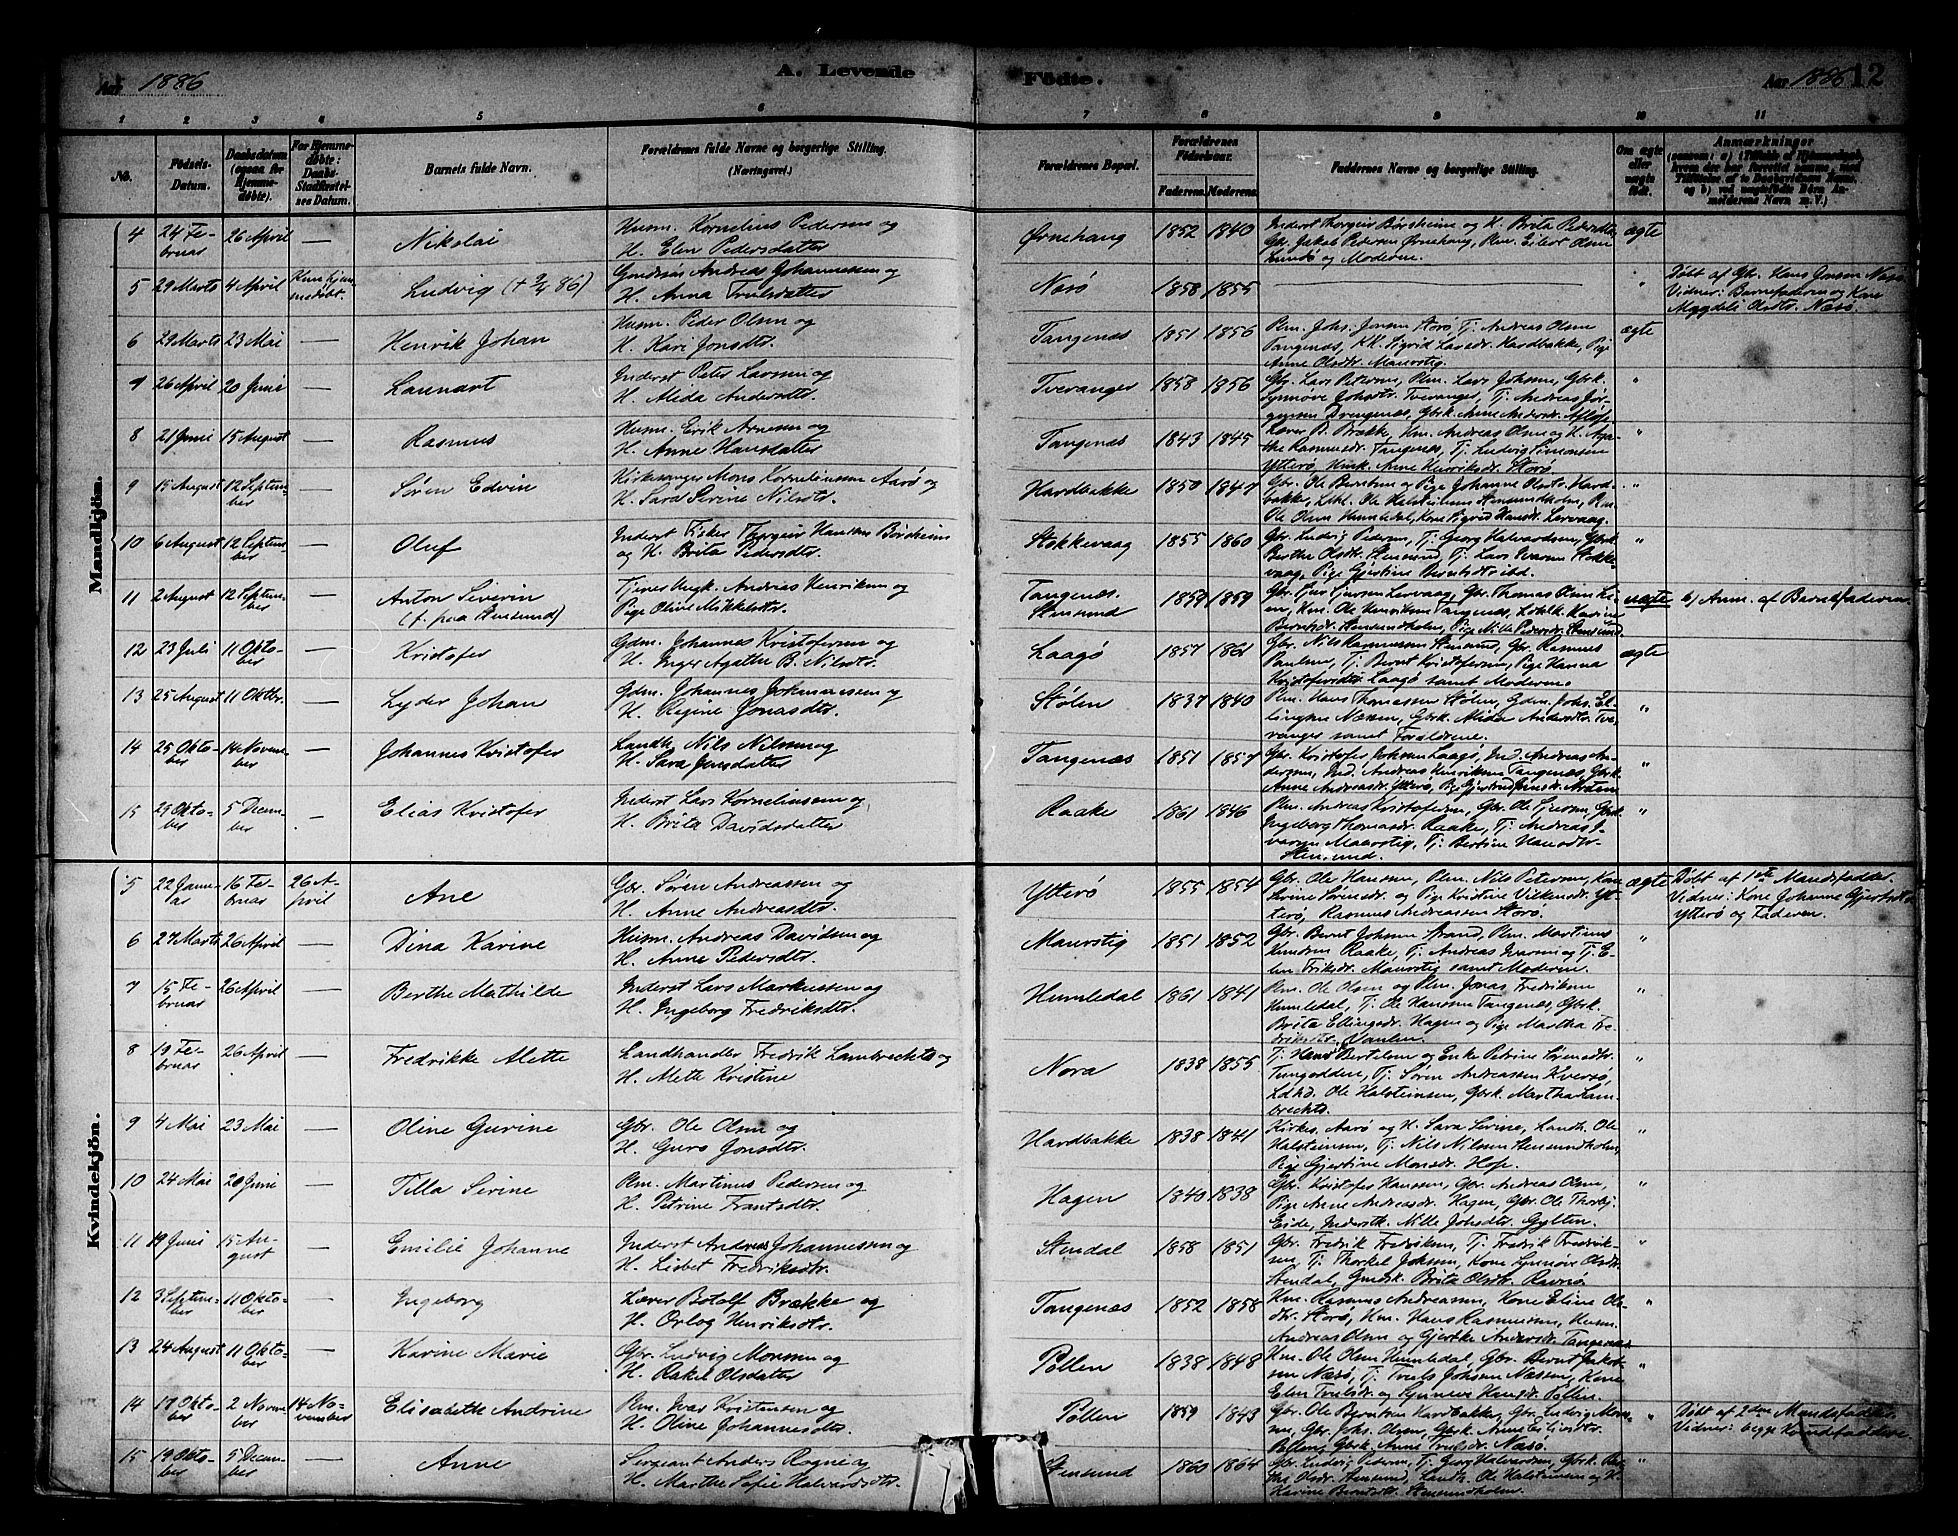 Aar 1886
A. Levende
Födte.
Aar 1886 12
1 2 3 4 5 6 7 8 9 10 11
No.
Födsels-Datum.
Daabsdatum (ogsaa for Hjemmedøbte).
For Hjemmedøbte: Daabs-Stadfæstelses Datum.
Barnets fulde Navn.
Forældrenes fulde Navne og borgerlige Stilling. (Næringsvei.)
Forældrenes Bopæl.
Forældrenes Födselsaar.
Faderens. Moderens.
Faddernes Navne og borgerlige Stilling.
Om ægte eller uægte født.
Anmærkninger
Mandkjön.
4 24 Februar 26 April — Nikolai
Husm. Kornelius Pedersen og
H. Elen Pedersdatter
Ørnehaug 1852 1840
Inderst Thorgeir Børsheim og H. Brita Pedersdtr
Gbr. Jakob Pedersen Ørnehaug, Pm. Eilert Olsen
Sundø og Moderen.
ægte
5 29 Marts 4 April Kun hjemmedøbt. Ludvig (+ 9/4 86)
Gmdsøn Andreas Johannessen og
H. Anna Trulsdatter
Nesø 1858 1855 —
" Døbt af Gbr. Hans Jensen Nesø
Vidner: Barnefaderen og Kone
Magdeli Olsdtr. Nesø.
6 29 Marts 23 Mai — Henrik Johan
Husm. Peder Olsen og
H. Kari Jonsdtr.
Tangenæs 1851 1856
Pm. Johs. Jonsen Storø, Tj. Andreas Olsen
Tangenæs, KK. Sigrid Larsdr. Hardbakke, Pige
Anne Olsdtr. Maurstig.
ægte
7 26 April 20 Juni — Lannart
Inderst Peter Larsen og
H. Alida Andersdtr.
Tveranger 1858 1856
Gbr. Lars Petersen, Pm. Lars Johsen, Gbrk.
Synnøve Johsdtr. Tveranger, Tj. Andreas Jørgensen
Drengenæs, Gbrk. Anne Andersdr.
"
8 21 Juni 15 August — Rasmus
Husm. Erik Arnesen og
H. Anne Hansdatter
Tangenæs 1843 1845
Lærer B. Brække, Hm. Andreas Olsen og H. Agathe
Rasmusdr. Tangenæs, Tj. Ludvig Simonsen
Ytterø, Husk. Anne Henriksdr. Storø.
"
9 15 August 12 September — Søren Edvin
Kirkesanger Mons Korneliussen Aarø og
H. Sara Serine Nilsdtr.
Hardbakke 1850 1847
Gbr. Ole Berntsen og Pige Johanne Olsdtr. Hardbakke,
Ldhl. Ole Halsteinsen Stensundholm, Pm.
Ole Olsen Humledal, Kone Sigrid Hansdr. Lervaag.
"
10 6 August 12 September — Oluf
Inderst Fisker Thorgeir Hansen Børsheim
og H. Brita Pedersdtr.
Stokkevaag 1855 1860
Gbr. Ludvig Pedersen, Tj. Georg Halvardsen, Gbrk.
Berthe Olsdtr. Stensund, Tj. Lars Ivarsen Stokkevaag,
Pige Gjertine Berntsdtr ibd.
"
11 2 August 12 September — Anton Severin
(f. paa Stensund)
Tjenes. Ungk. Andreas Henriksen og
Pige Oline Mikkelsdtr.
Tangenæs.
Stensund 1859 1859
Gbr. Tjer Tjersen Lervaag, Gbr. Thomas Olsen
Hm. Ole Henriksen Tangenæs, Lotslk. Karine
Berntsdr. Stensundholm, Pige Nille Pedersdr. Stensund.
uægte b) Anm. af Barnefaderen.
12 23 Juli 11 Oktober — Kristofer
Gdm. Johannes Kristofersen og
H. Inger Agathe B. Nilsdtr.
Laagø 1857 1861
Gbr. Nils Rasmussen Stensund, Gbr. Rasmus
Paulsen, Tj. Bernt Kristofersen, Pige Hanna
Kristofersdtr Laagø samt Moderen.
ægte
13 25 August 11 Oktbr. — Lyder Johan
Gdm. Johannes Johannessen og
H. Regine Jonasdtr.
Stølen 1837 1840
Pm. Hans Thomassen Stølen, Gdm. Johs. Ellingsen
Nessen, Gbrk. Alida Andersdtr. Tveranger
samt Forældrene.
"
14 25 Oktober 14 November — Johannes Kristofer
Landh. Nils Nilsen og
H. Sara Jonsdatter
Tangenæs 1851 1857
Gbr. Kristofer Johsen Laagø, Ind. Andreas Andersen,
Ind. Andreas Henriksen Tangenæs, Gbrk.
Anne Andreasdr. Ytterø, Pige Gjertrud
"
15 29 Oktober 5 December — Elias Kristofer
Inderst Lars Korneliussen og
H. Brita Davidsdatter
Raake 1861 1846
Pm. Andreas Kristofersen, Gbr. Ole Tjersen, Gbrk.
Ingeborg Thomasdr. Raake, Tj. Andreas Ivarsen
Maurstig, Tj. Bertine Hansdtr.
Stensund.
"
Kvindekjön.
5 22 Januar 16 Februar 26 April Ane
Gbr. Søren Andreassen og
H. Anne Andreasdtr.
Ytterø 1855 1854
Gbr. Ole Hansen, Pm. Nils Petersen, Kone
Serine Sørensdr. og Pige Kristine Vilkensdr. Ytterø,
Rasmus Andreassen Storø.
ægte Døbt af 1ste Mandsfadder.
Vidner: Kone Johanne Gjertsdtr
Ytterø og Faderen.
6 27 Marts 26 April — Dina Karine
Husm. Andreas Davidsen og
H. Anne Pedersdtr.
Maurstig 1851 1852
Gbr. Bernt Johsen Strand, Pm. Martinus
Knudsen Raake, Tj. Andreas Ivarsen og Tj. Elen
Eriksdr. Maurstig samt Moderen.
"
7 15 Februar 26 April — Berthe Mathilde
Inderst Lars Markussen og
H. Ingeborg Fredriksdtr.
Humledal 1861 1841
Pm. Ole Olsen og Pm. Jonas Fredriksen
Humledal, Tj. Ole Hansen Tangenæs, Gbrk.
Brita Ellingsdr. Hagen og Pige Martha Fredriksdtr.
"
8 19 Februar 26 April — Fredrikke Alette
Landhandler Fredrik Lambrechts og
H. Alette Kristine
Nora 1838 1855
Tj. Hans Bertelsen og Enke Petrine Sørensdtr.
Tungodden, Tj. Søren Andreassen Kversø,
Ldhd. Ole Halsteinsen, Gbrk. Martha Lambrechts.
"
9 4 Mai 23 Mai — Oline Gurine
Gbr. Ole Olsen og
H. Guro Jonsdtr.
Hardbakke 1838 1841
Kirkes. Aarø og H. Sara Serine, Landh. Ole
Halsteinsen, Tj. Nils Nilsen Stensundholm,
Pige Gjertine Monsdr. Hope.
"
10 24 Mai 20 Juni — Tilla Serine
Pm. Martinus Pedersen og
H. Petrine Frantsdtr.
Hagen 1840 1838
Gbr. Kristofer Hanssen, Gbr. Andreas Olsen,
Pige Anne Andreasdr. Hagen, Gbr. Ole Thorbj.
Eide, Inderstk. Nille Johsdtr. Gylten.
"
11 19 Juni 15 August — Emilie Johanne
Inderst Andreas Johannessen og
H. Lisbet Fredriksdtr.
Stendal 1858 1851
Gbr. Fredrik Fredriksen, Tj. Fredrik Fredriksen,
Tj. Thorkel Johsen, Kone Synnøve Olsdr.
Stendal, Gmdsk. Brita Olsdtr. Ravnø.
"
12 3 September 11 Oktober — Ingeborg
Lærer Botolf Brække og
H. Orlog Henriksdtr.
Tangenæs 1852 1858
Hm. Rasmus Andreassen, Kone Eline Olsdtr.
Storø, Hm. Hans Rasmussen, Husm.
Andreas Olsen og Gjertke Andersdr. Tangenæs.
"
13 24 August 11 Oktober — Karine Marie
Gbr. Ludvig Monsen og
H. Rakel Olsdatter
Pollen 1838 1848
Hm. Ole Olsen Humledal, Gbr. Bernt Jakobsen
Nesø, Tj. Truls Johsen Nessen, Kone
Elen Trulsdr. og Synneve Hansdr. Pollen.
"
14 17 Oktober 2 November 14 November Elisabeth Andrine
Pm. Ivar Kristensen og
H. Oline Johannesdtr.
Pollen 1859 1843
Gbr. Ole Berntsen Hardbakke, Gbr. Ludvig Monsen,
Gbr. Johs. Olsen, Gbrk. Anne
Pollen, Gbrk. Anne Trulsdr. Nesø.
" Døbt af 2den Mandsfadder.
Vidner: begge Kvindefaddere.
15 19 Oktober 5 December — Anne
Sergeant Anders Rogne og
H. Marthe Sofie Halvardsdtr.
Stensund 1860 1864
Gbr. Ludvig Petersen, Tj. Georg Halvardsen, Gbrk. Berthe
Olsdr. Stensund, Landh. Ole Halsteinsen og H.
Karine Berntsdtr. Stensundholm.
"